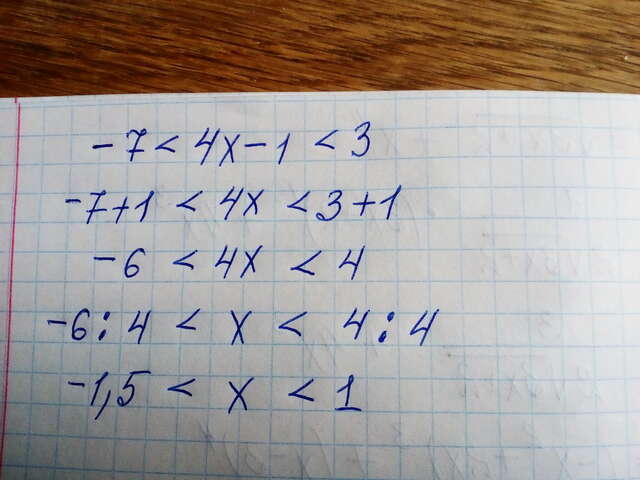 -7 < 4x - 1 < 3
-7+1 < 4x < 3+1
-6 < 4x < 4
-6 : 4 < x < 4 : 4
-1,5 < x < 1